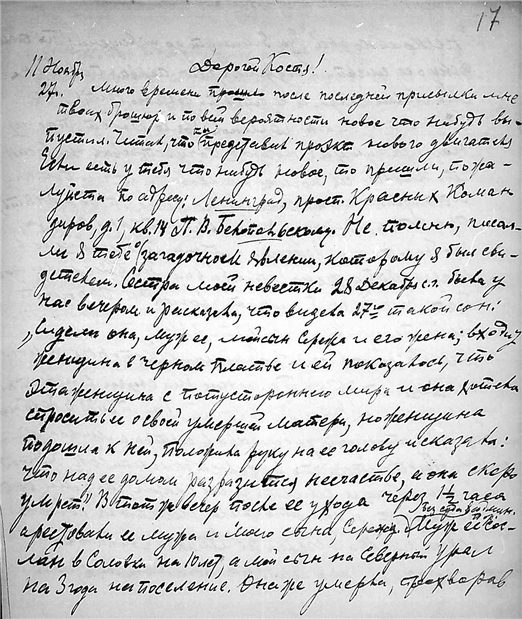 17
11 Ноября
27 г.
Дорогой Костя!
Много времени прошло после последней присылки мне
твоих брошюр и по всей вероятности новое что нибудь вы-
пустил. Читал, что ты представил проэкт нового двигателя
Если есть у тебя что нибудь новое, то пришли, пожа-
луйста по адресу: Ленинград, просп. Красных Коман
диров, д. 1, кв. 14 П. В.
Не помню, писал
ли я тебе о загадочном явлении, которому я был сви-
детелем. Сестра моей невестки 28 Декабря с.г. была у
нас вечером и рассказала, что видела 27го такой сон:
„Сидели она, муж ее, мой сын Сережа и его жена; входит
женщина в черном платье и ей показалось, что
эта женщина с потустороннего мира и она хотела
спросить и о своей умершей матери, но женщина
подошла к ней, положила руку на ее голову и сказала:
что над ее домом разразится несчастье, а она скоро
умрет". В тот же вечер после ее ухода через 1½ часа
арестовали ее мужа и моего сына Сережу. Муж ее
сослан в Соловки на 10 лет, а мой сын на Северный Урал
на 3 года на поселение. Она же умерла, прохворав